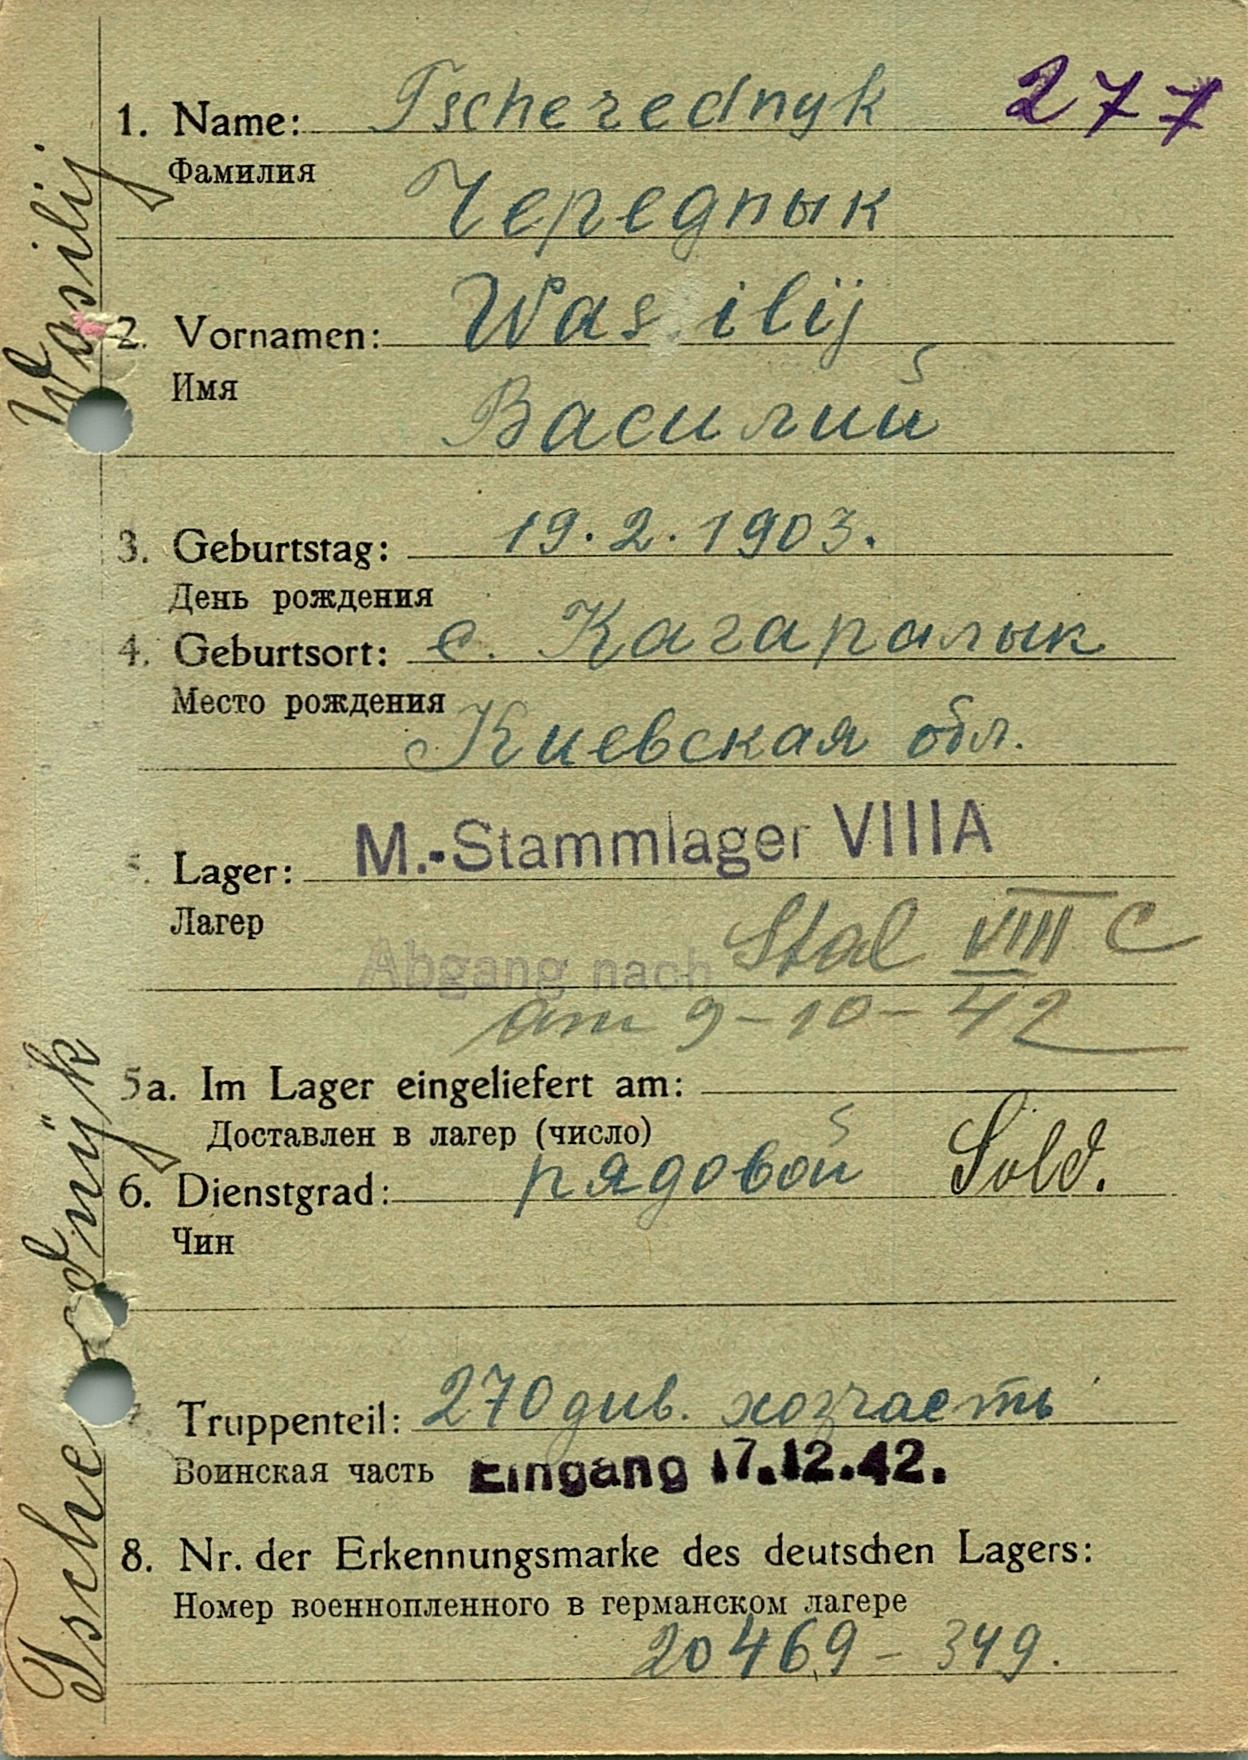 277
1. Name: Tscherednyk
Фамилия
Чередпык
2. Vornamen: Wassilij
Имя
Василий
3. Geburtstag: 19.2.1903.
День рождения
4. Geburtsort: с. Кагаралык
Место рождения
Киевская обл.
5. Lager: M.-Stammlager VIIIA
Лагер
Abgang nach Stal VIII C
am 9-10-42
5a. Im Lager eingeliefert am:
Доставлен в лагер (число)
6. Dienstgrad: рядовой Sold.
Чин
7. Truppenteil: 270 див. хозчасть
Воинская часть Eingang 17.12.42.
8. Nr. der Erkennungsmarke des deutschen Lagers:
Номер военнопленного в германском лагере
20469 - 349.
Tscherednÿk Wasilij